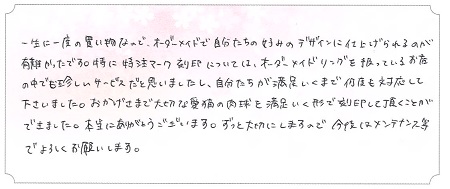 一生に一度の買い物なので、オーダーメイドで自分たちの好みのデザインに仕上げられるのが
有難かったです。特に特注マーク刻印については、オーダーメイドリングを扱っているお店
の中でも珍しいサービスだと思いましたし、自分たちが満足いくまで何度も対応して
下さいました。おかげさまで大切な愛猫の肉球を満足いく形で刻印して頂くことが
できました。本当にありがとうございます。ずっと大切にしますので今後はメンテナンス等
でよろしくお願いします。